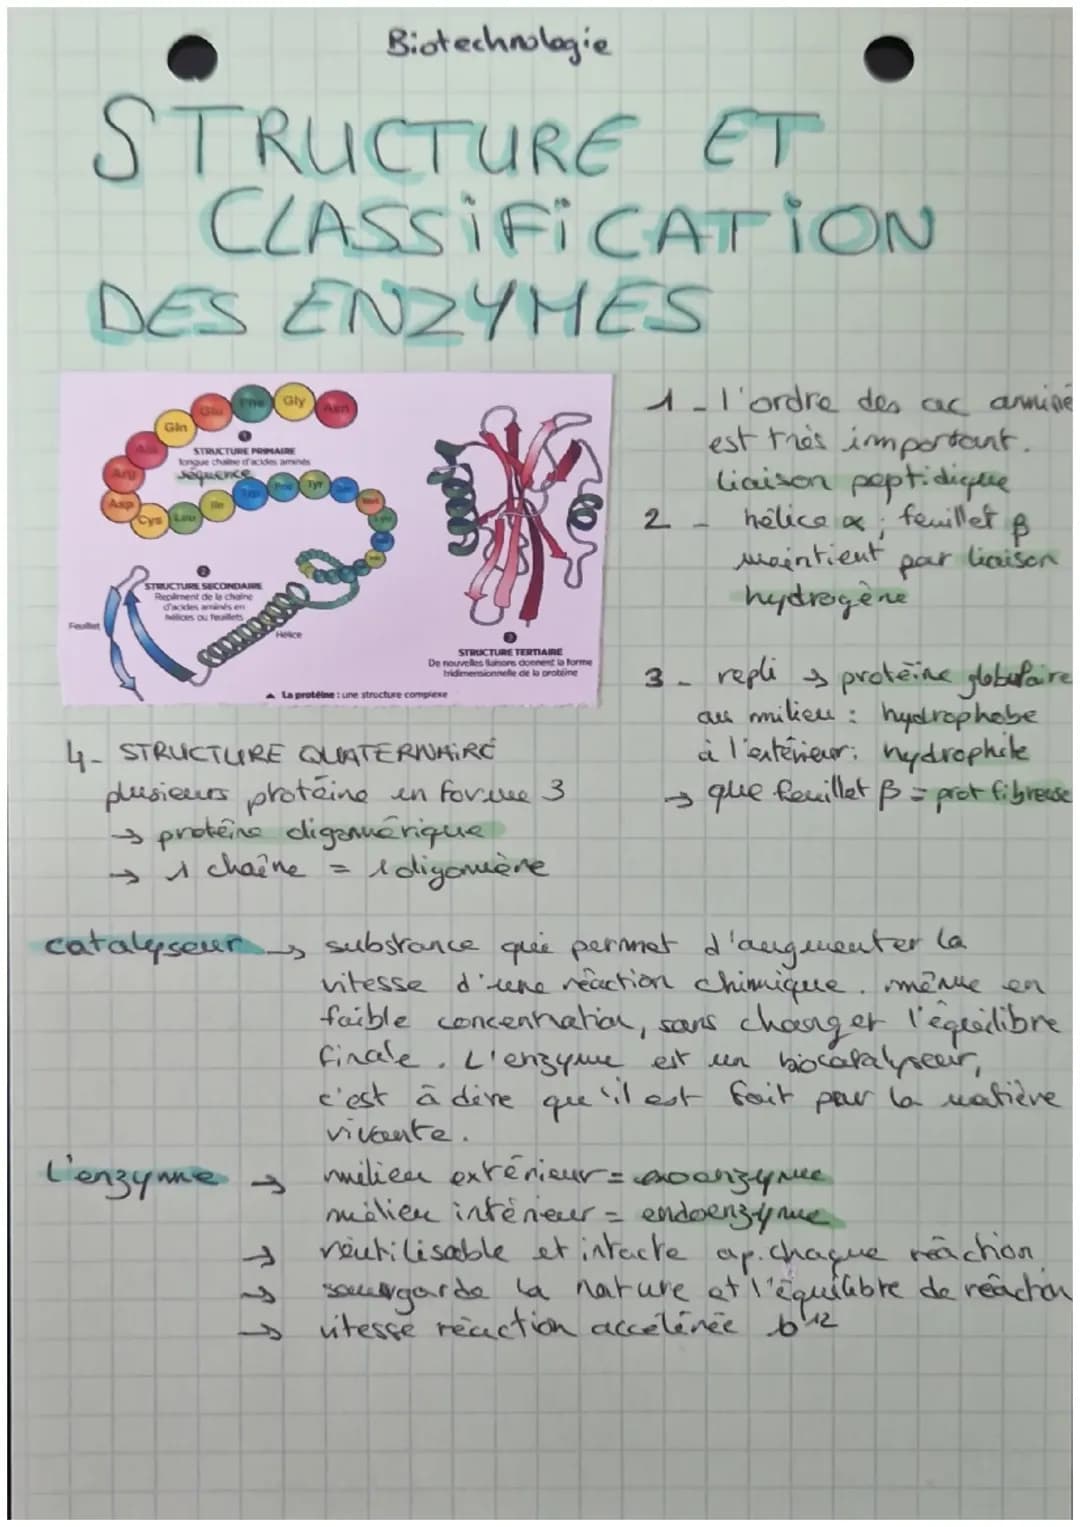 Biotechnologie
STRUCTURE ET
CLASSIFICATION
DES ENZYMES
Glu Phe Gly Asn
Gln
Ala
Arg
Asp
Cys Leu Ile Phe Tyr
1
STRUCTURE PRIMAIRE
longue chaîne d'acides aminés
séquence
2
STRUCTURE SECONDAIRE
Repliment de la chaîne
d'acides aminés en
hélices ou feuillets
Feuillet
Hélice
3
STRUCTURE TERTIAIRE
De nouvelles liaisons donnent la forme
tridimensionnelle de la protéine
▲ La protéine : une structure complexe
1 - l'ordre des ac aminé
est très important.
liaison peptidique
2 - hélice α ; feuillet β
maintient par liaison
hydrogène
3 - repli → protéine globulaire
au milieu : hydrophobe
à l'extérieur : hydrophile
→ que feuillet β = prot fibreuse
4- STRUCTURE QUATERNAIRE
plusieurs protéine en forme 3
→ protéine oligomérique
→ 1 chaîne = 1 oligomère
catalyseur → substance qui permet d'augmenter la
vitesse d'une réaction chimique. même en
faible concentration, sans changer l'équilibre
finale. L'enzyme est un biocatalyseur,
c'est à dire qu'il est fait par la matière
vivante.
L'enzyme → milieu extérieur = exoenzyme
milieu intérieur = endoenzyme
→ réutilisable et intacte ap. chaque réaction
→ sauvgarde la nature et l'équilibre de réaction
→ vitesse réaction accélérée